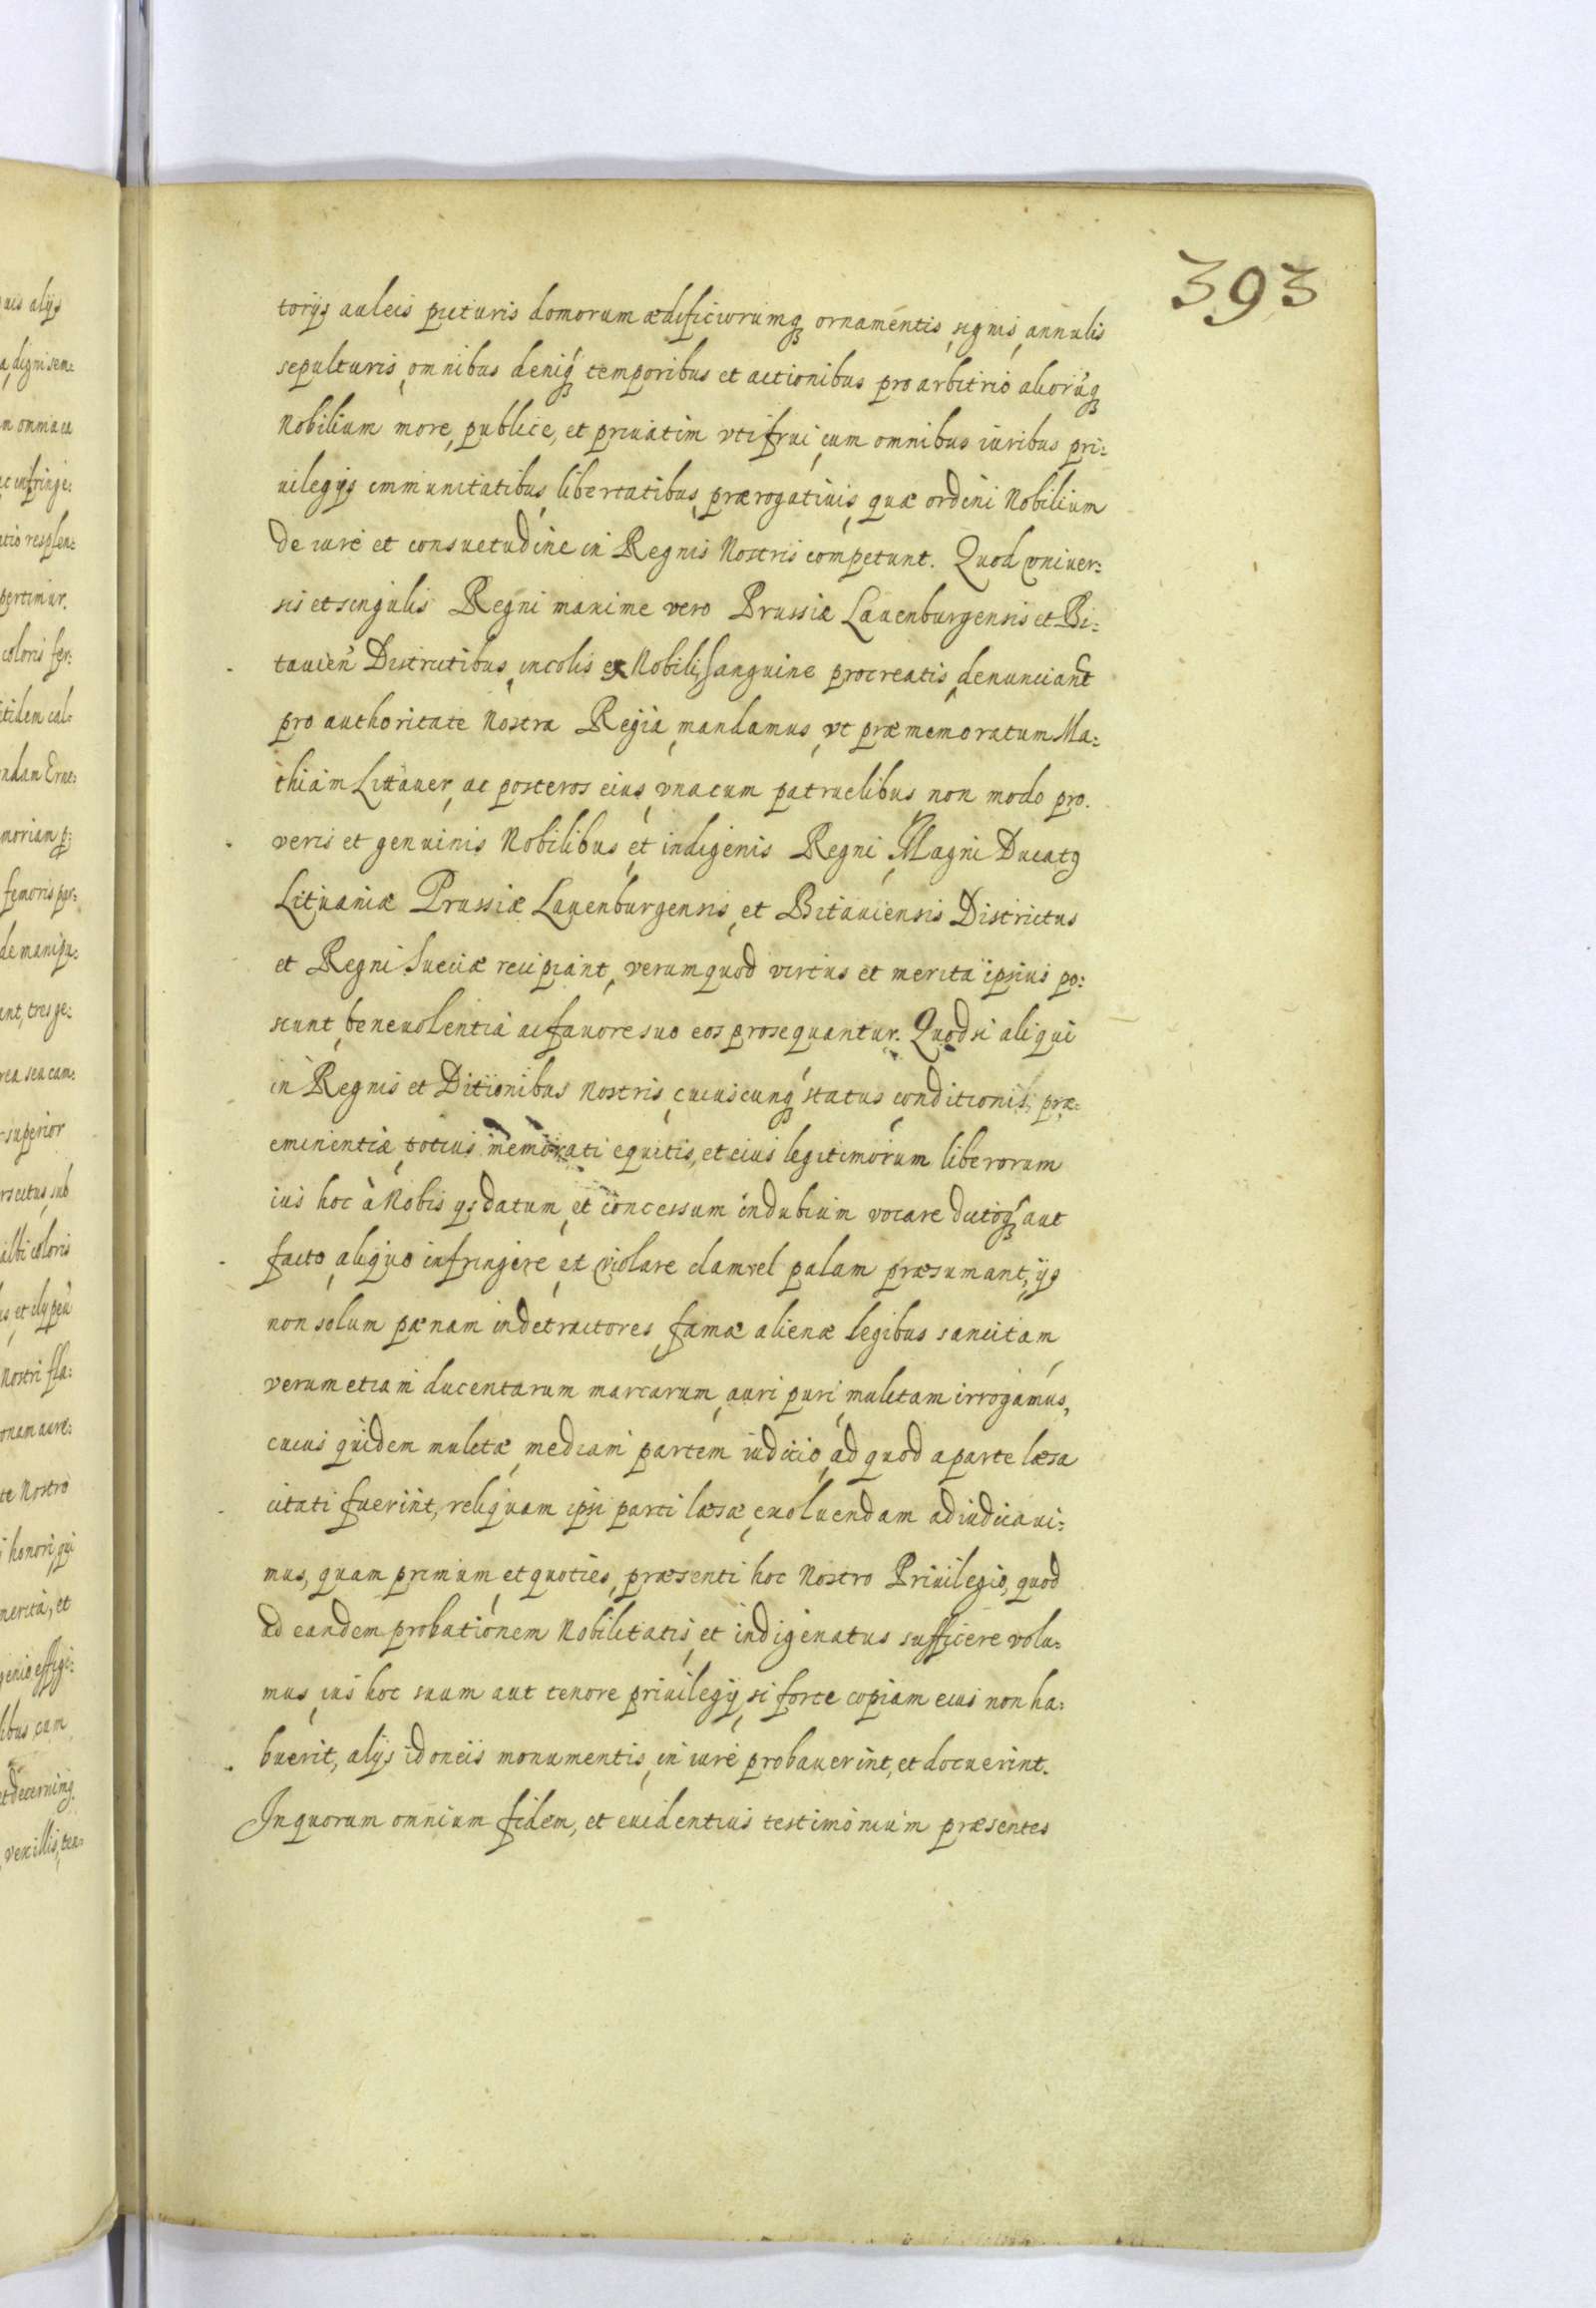 393
torijs auleis picturis domorum ædificiorumq́ꝫ ornamentis, signis, annulis
sepulturis, omnibus deniq́ꝫ temporibus et actionibus pro arbitrio aliorūqꝫ
Nobilium more, publice, et priuatim vti frui, cum omnibus iuribus pri:
uilegijs immunitatibus, libertatibus, prærogatiuis, quæ ordini Nobilium
de iure et consuetudine in Regnis Nostris competunt. Quod vniuer:
sis et singulis Regni maxime vero Prussiæ Lauenburgensis et Bi:
tauień Districtibus, incolis ex Nobili sanguine procreatis, denunciant
pro authoritate Nostra Regia, mandamus, vt præmemoratum Ma:
thiam Littauer, ac posteros eius, vna cum patruelibus, non modo pro
veris et genuinis Nobilibus, et indigenis Regni, Magni Ducatꝯ
Lituaniæ Prussiæ Lauenburgensis, et Bitauiensis Districtus
et Regni Sueciæ recipiant, verum quod virtus et merita ipsius po:
scunt, beneuolentia ac fauore suo eos prosequantur. Quod si aliqui
in Regnis et Ditionibus Nostris, cuiuscunq́ꝫ status, conditionis, præ:
eminentiæ, totius memorati equitis, et eius legitimorum liberorum
ius hoc à Nobis ijs datum, et concessum in dubium vocare dictoq́ꝫ aut
facto, aliquo infringere, et violare clam vel palam præsumant, ijs
non solum pænam in detractores, famæ alienæ legibus sancitam
verum etiam ducentarum marcarum, auri puri, mulctam irrogamus,
cuius quidem mulctæ, mediam partem iudicio, ad quod a parte læsa
citati fuerint, reliquam ipsi parti læsæ, exoluendam adiudicaui:
mus, quam primum, et quoties, præsenti hoc Nostro Priuilegio, quod
ad eandem probationem Nobilitatis, et indigenatus sufficere volu:
mus, ius hoc suum aut tenore priuilegij, si forte copiam eius non ha:
buerit, alijs idoneis monumentis, in iure probauerint, et docuerint.
In quorum omnium fidem, et euidentius testimonium præsentes